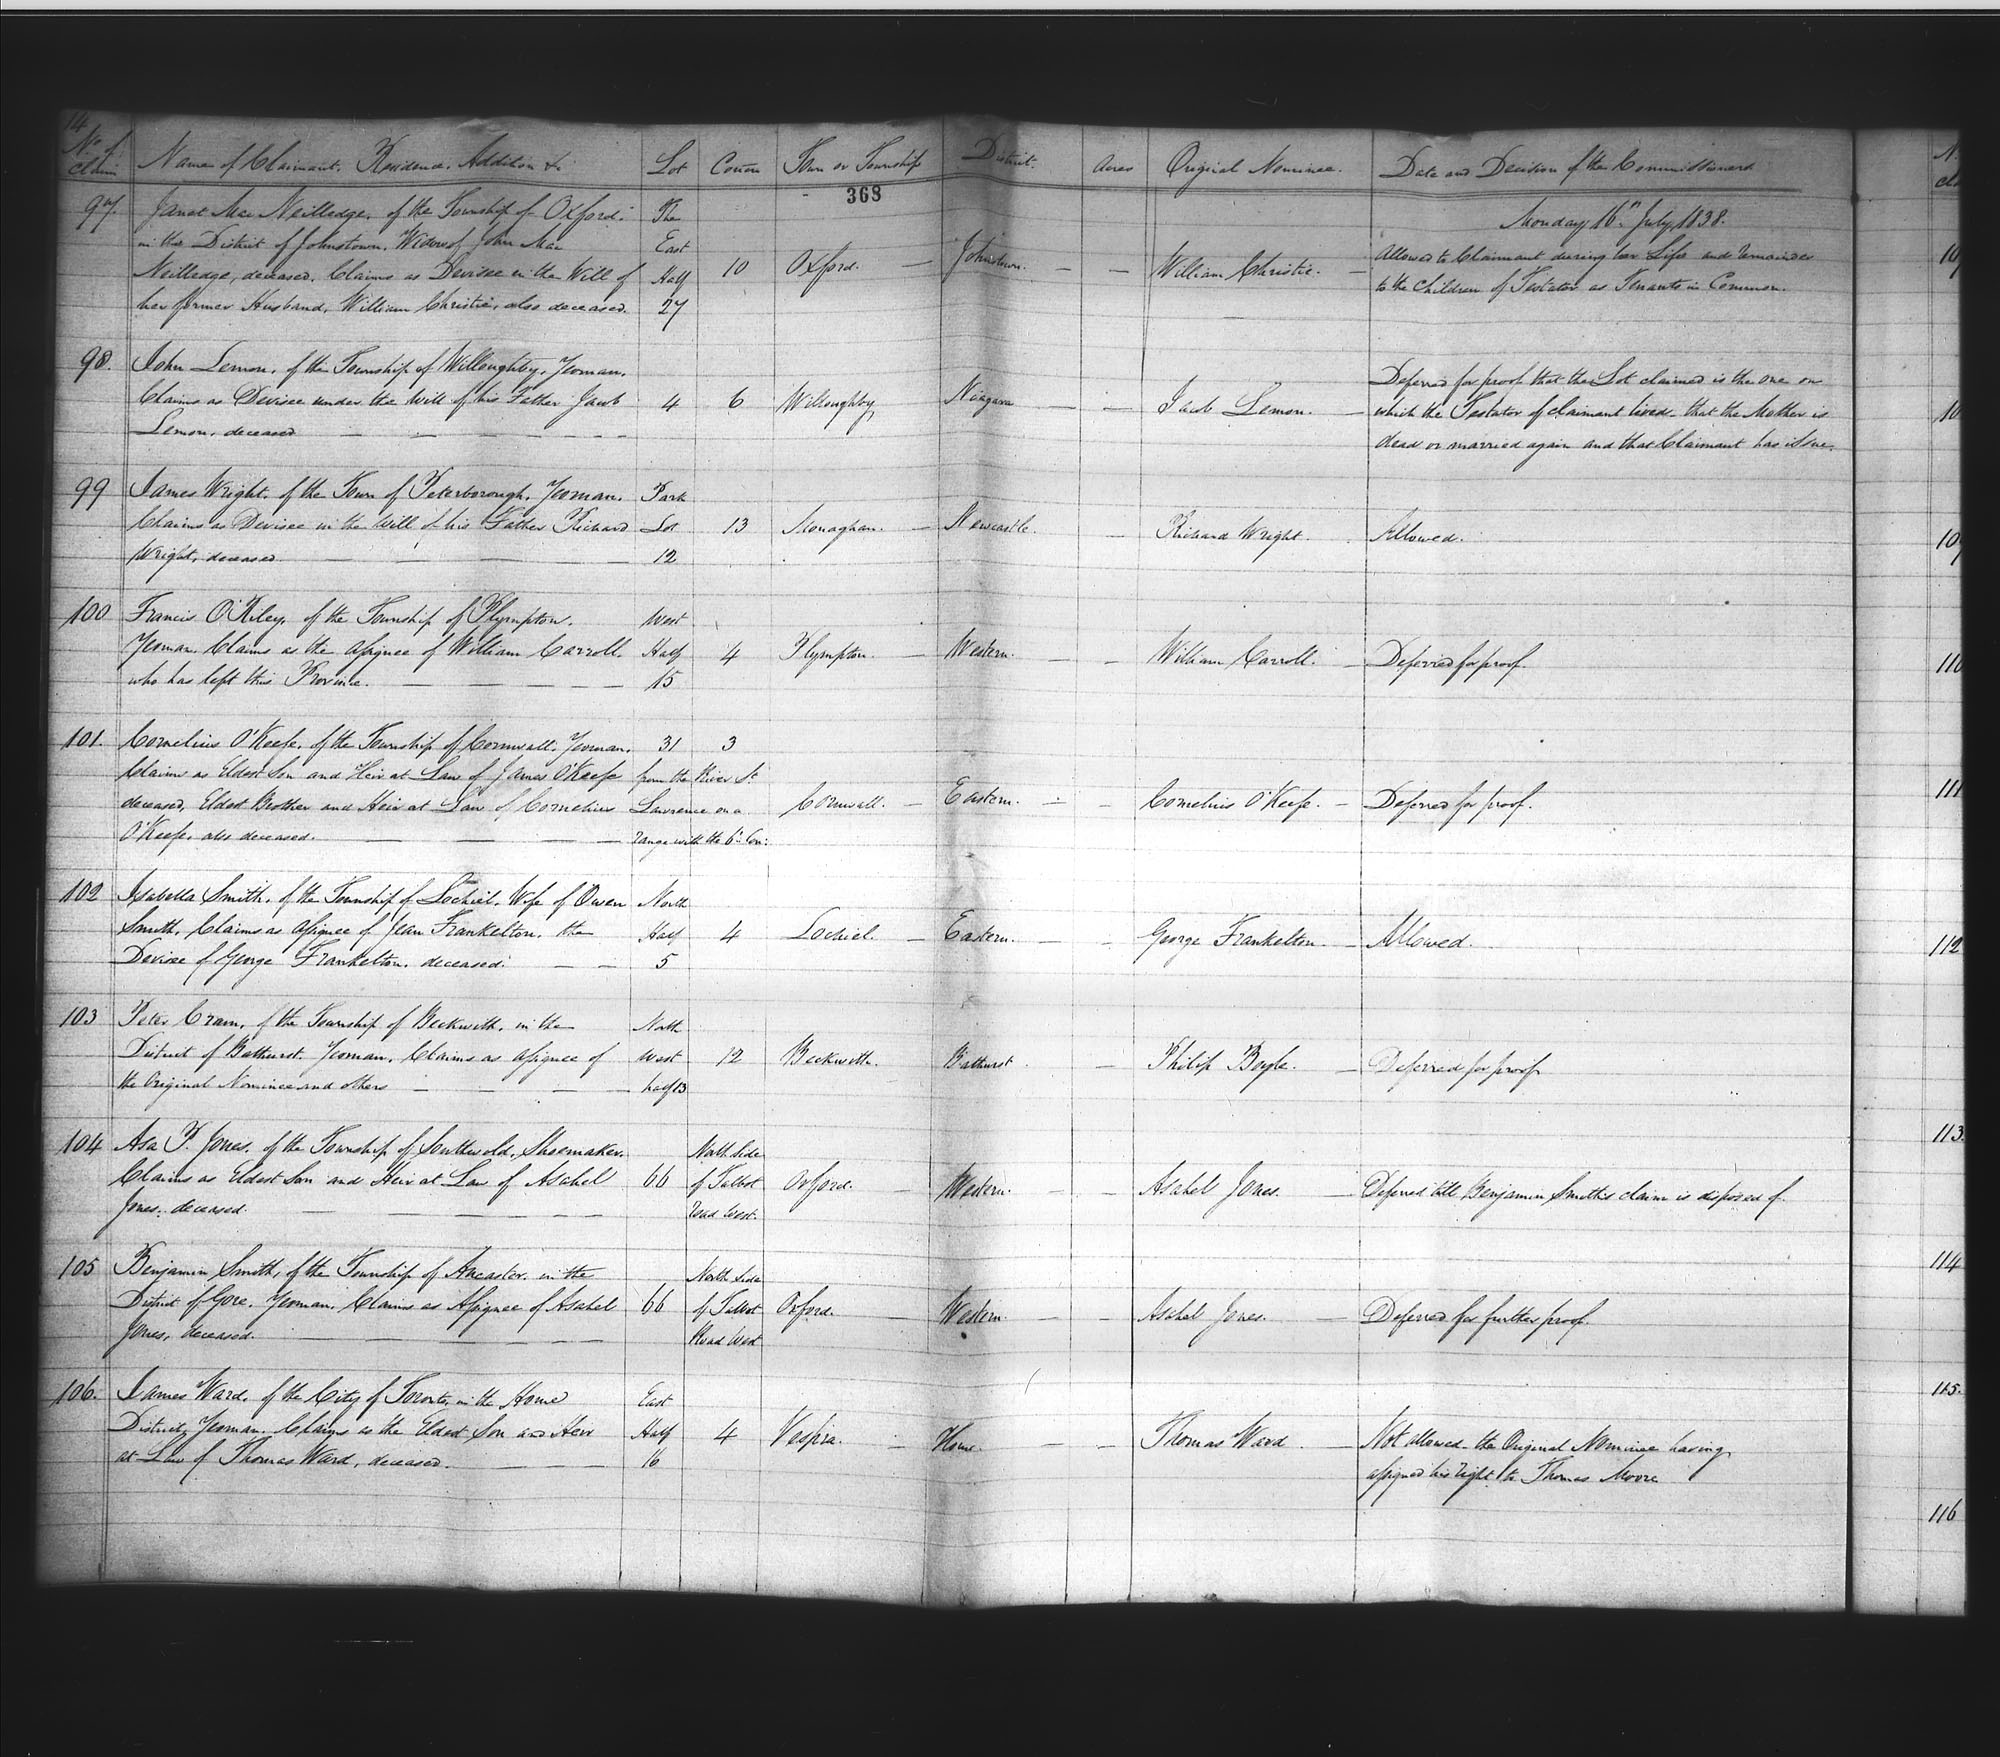 14
No. of Claim Name of Claimant, Residence, Addition &c. Lot Conon Town or Township District. Acres Original Nominee. Date and Decision of the Commissioners
368
Monday 16th July, 1838.
97. Janet Mac Neilledge, of the Township of Oxford, The
in the District of Johnstown, Widow of John Mac East
Neilledge, deceased, Claims as Devisee in the Will of Half 10 Oxford. Johnstown. William Christie. Allowed to Claimant during her Life and remainder
her former Husband, William Christie, also deceased. 27 to the Children of Testator as Tenants in Common.
98. John Lemon, of the Township of Willoughby, Yeoman, Deferred for proof that the Lot claimed is the one on
Claims as Devisee under the Will of his Father Jacob 4 6 Willoughby Niagara Jacob Lemon. which the Testator of claimant lived - that the Mother is
Lemon, deceased dead or married again and that Claimant has issue.
99 James Wright, of the Town of Peterborough, Yeoman, Park
Claims as Devisee in the Will of his Father Richard Lot 13 Monaghan. Newcastle. Richard Wright. Allowed.
Wright, deceased. 12
100 Francis O'Riley, of the Township of Plympton, West
Yeoman, Claims as the Assignee of William Carroll, Half 4 Plympton. Western. William Carroll. Deferred for proof
who has left this Province. 15
101. Cornelius O'Keefe, of the Township of Cornwall, Yeoman, 31 3
Claims as Eldest Son and Heir at Law of James O'Keefe from the River St.
deceased, Eldest Brother and Heir at Law of Cornelius Lawrence on a Cornwall. Eastern. Cornelius O'Keefe. Deferred for proof.
O'Keefe, also deceased. range with the 6th Con:
102 Isabella Smith, of the Township of Lochiel, Wife of Owen North
Smith, Claims as Assignee of Jean Frankelton, the Half 4 Lochiel. Eastern. George Frankelton. Allowed.
Devisee of George Frankelton, deceased. 5
103 Peter Cram, of the Township of Beckwith, in the North
District of Bathurst, Yeoman, Claims as Assignee of West 12 Beckwith. Bathurst Philip Boyle. Deferred for proof
the Original Nominee and others half 13
104 Asa P. Jones, of the Township of Southwold, Shoemaker, North Side
Claims as Eldest Son and Heir at Law of Asahel 66 of Talbot Orford. Western. Asahel Jones. Deferred till Benjamin Smith's claim is disposed of.
Jones, deceased. road West.
105 Benjamin Smith, of the Township of Ancaster, in the North Side
District of Gore, Yeoman, Claims as Assignee of Asahel 66 of Talbot Orford. Western. Asahel Jones. Deferred for further proof.
Jones, deceased. Road West
106. James Ward, of the City of Toronto, in the Home East
District, Yeoman, Claims as the Eldest Son and Heir Half 4 Vespra. Home. Thomas Ward Not allowed - the Original Nominee having
at Law of Thomas Ward, deceased. 16 assigned his right to Thomas Moore
110
111
112
113.
114
115.
116